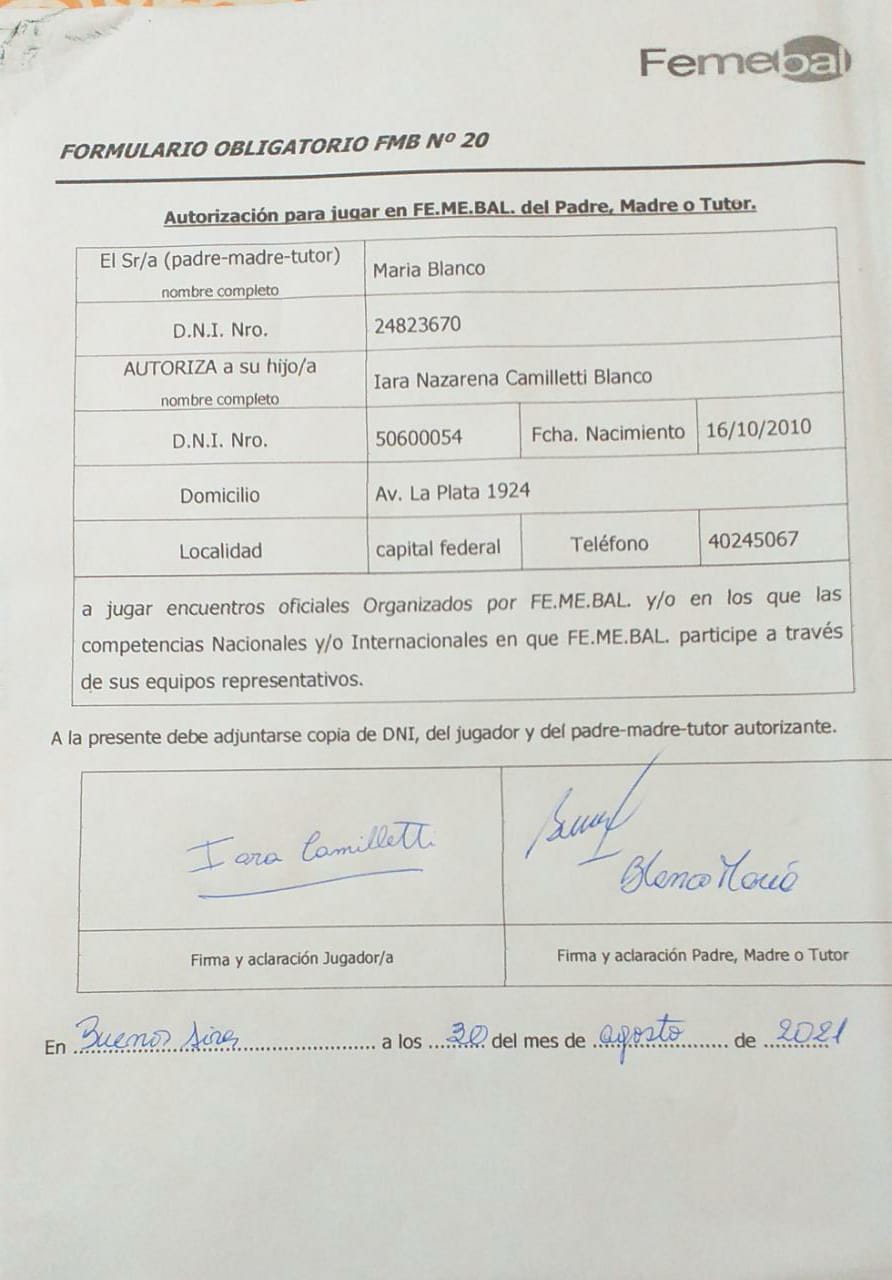 Femebal
FORMULARIO OBLIGATORIO FMB Nº 20
Autorización para jugar en FE.ME.BAL. del Padre, Madre o Tutor.
El Sr/a (padre-madre-tutor)
nombre completo
Maria Blanco
D.N.I. Nro.
24823670
AUTORIZA a su hijo/a
nombre completo
Iara Nazarena Camilletti Blanco
D.N.I. Nro.
50600054
Fcha. Nacimiento
16/10/2010
Domicilio
Av. La Plata 1924
Localidad
capital federal
Teléfono
40245067
a jugar encuentros oficiales Organizados por FE.ME.BAL. y/o en los que las
competencias Nacionales y/o Internacionales en que FE.ME.BAL. participe a través
de sus equipos representativos.
A la presente debe adjuntarse copia de DNI, del jugador y del padre-madre-tutor autorizante.
Iara Camilletti
Blanco María
Firma y aclaración Jugador/a
Firma y aclaración Padre, Madre o Tutor
En Buenos Aires a los 30 del mes de agosto de 2021